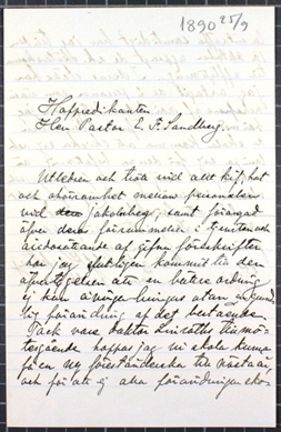 1890 25/9
Hofpredikanten
Herr Pastor E. F. Sandberg.
Utledsen och trött vid allt kif, hat
och ohörsamhet mellan personalen
vid Jakobsberg, samt förargad
öfver deras försummelser i tjensten och
åsidosättande af gifna föreskrifter
har jag slutligen kommit till den
öfvertygelsen att en bättre ordning
ej kan åvägabringas utan
lig förändring af det bestående.
Tack vare doktor tillmö-
tesgående hoppas jag ni skola kunna
få en ny föreståndarinna till nästa år,
och för att ej alla förändringar ska-